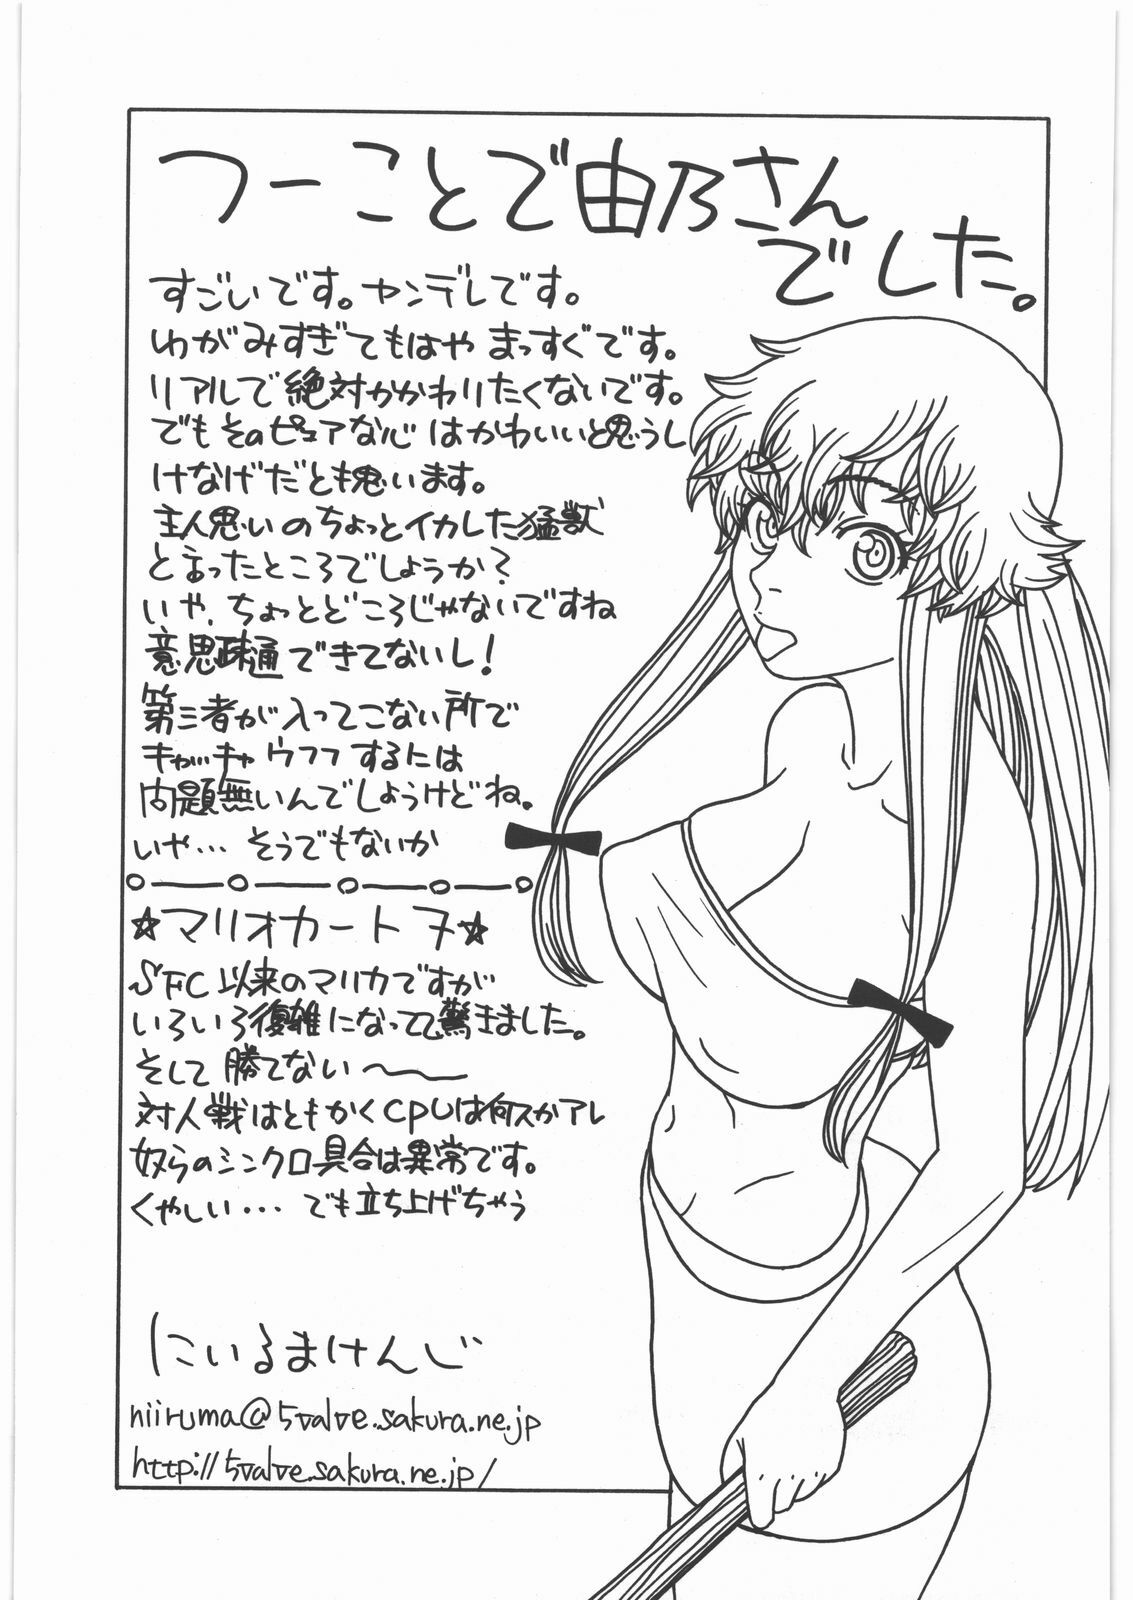 つーことで由乃さん
でした。
すごいです。ヤンデレです。
ゆがみすぎてもはや まっすぐです。
リアルで絶対かかわりたくないです。
でもそのピュアな心はかわいいと思うし
けなげだとも思います。
主人思いのちょっとイカした猛獣
とまったところでしょうか?
いや、ちょっとどころじゃないですね
意思疎通できてないし!
第三者が入ってこない所で
キャッキャウフフするには
問題無いんでしょうけどね。
いや… そうでもないか
☆マリオカート7☆
SFC以来のマリカですが
いろいろ復雑になってて驚きました。
そして勝てない〜
対人戦はともかくCPUは何スかアレ
奴らのシンクロ具合は異常です。
くやしい… でも立ち上げちゃう
にいるまけんじ
niiruma@5valve.sakura.ne.jp
http://5valve.sakura.ne.jp/